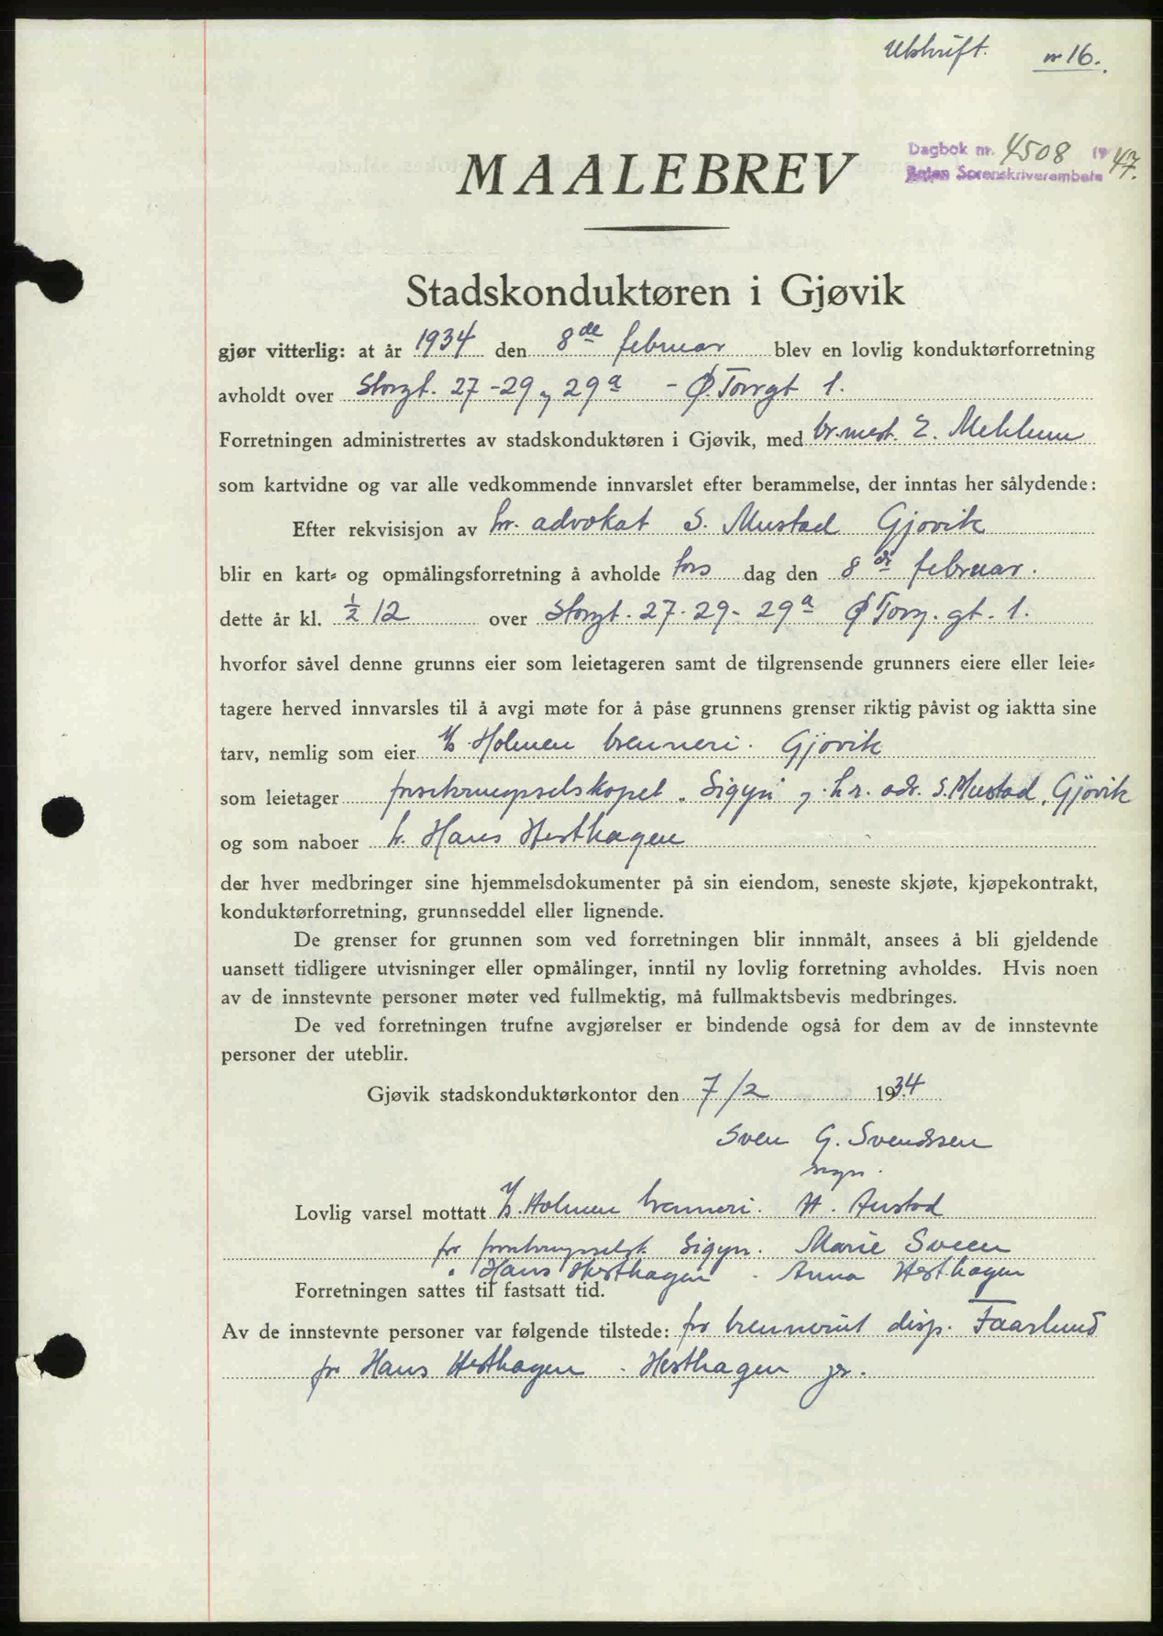 Utskrift. nr 16.
Dagbok nr. 4508 1947.
Sorenskriverembete
MAALEBREV
Stadskonduktøren i Gjøvik
gjør vitterlig: at år 1934 den 8de februar blev en lovlig konduktørforretning
avholdt over Storgt. 27-29 og 29a - Ø. Torvgt 1.
Forretningen administrertes av stadskonduktøren i Gjøvik, med br.mest. E. Mehlum
som kartvidne og var alle vedkommende innvarslet efter berammelse, der inntas her sålydende:
Efter rekvisisjon av hr. advokat S. Mustad Gjøvik
blir en kart= og opmålingsforretning å avholde tors dag den 8de februar.
dette år kl. ½ 12 over Storgt. 27-29-29a Ø Torv.gt. 1.
hvorfor såvel denne grunns eier som leietageren samt de tilgrensende grunners eiere eller leie=
tagere herved innvarsles til å avgi møte for å påse grunnens grenser riktig påvist og iaktta sine
tarv, nemlig som eier A/S Holmen brenneri. Gjövik
som leietager forsikringsselskapet "Sigyn" v. h.r. adv. S. Mustad, Gjövik
og som naboer hr. Hans Hesthagen
der hver medbringer sine hjemmelsdokumenter på sin eiendom, seneste skjøte, kjøpekontrakt,
konduktørforretning, grunnseddel eller lignende.
De grenser for grunnen som ved forretningen blir innmålt, ansees å bli gjeldende
uansett tidligere utvisninger eller opmålinger, inntil ny lovlig forretning avholdes. Hvis noen
av de innstevnte personer møter ved fullmektig, må fullmaktsbevis medbringes.
De ved forretningen trufne avgjørelser er bindende også for dem av de innstevnte
personer der uteblir.
Gjøvik stadskonduktørkontor den 7/2 1934
Sven G. Svendssen
sign.
Lovlig varsel mottatt A/S. Holmen brenneri. H. Austad
for forsikringsselsk. Sigyn. Marie Sveen
" Hans Hesthagen - Anna Hesthagen
Forretningen sattes til fastsatt tid.
Av de innstevnte personer var følgende tilstede: for brenneriet disp. Faarlund
for Hans Hesthagen - Hesthagen jr.